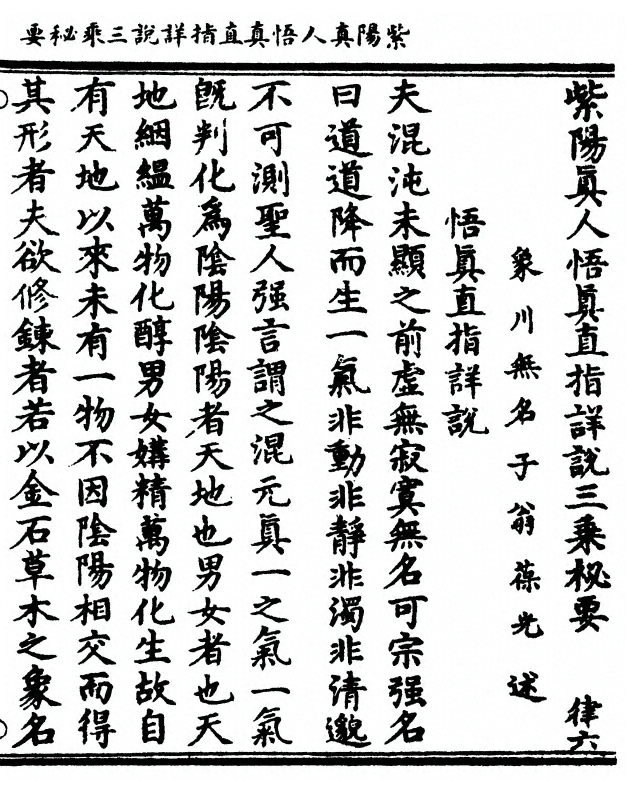 紫陽真人悟真直指詳說三乘秘要
紫陽眞人悟眞直指詳說三乘祕要 律六
象川無名子翁葆光述
悟眞直指詳說
夫混沌未顯之前虛無寂寞無名可宗强名
曰道道降而生一氣非動非靜非濁非清邈
不可測聖人强言謂之混元眞一之氣一氣
旣判化爲陰陽陰陽者天地也男女者也天
地絪縕萬物化醇男女媾精萬物化生故自
有天地以來未有一物不因陰陽相交而得
其形者夫欲修鍊者若以金石草木之象名